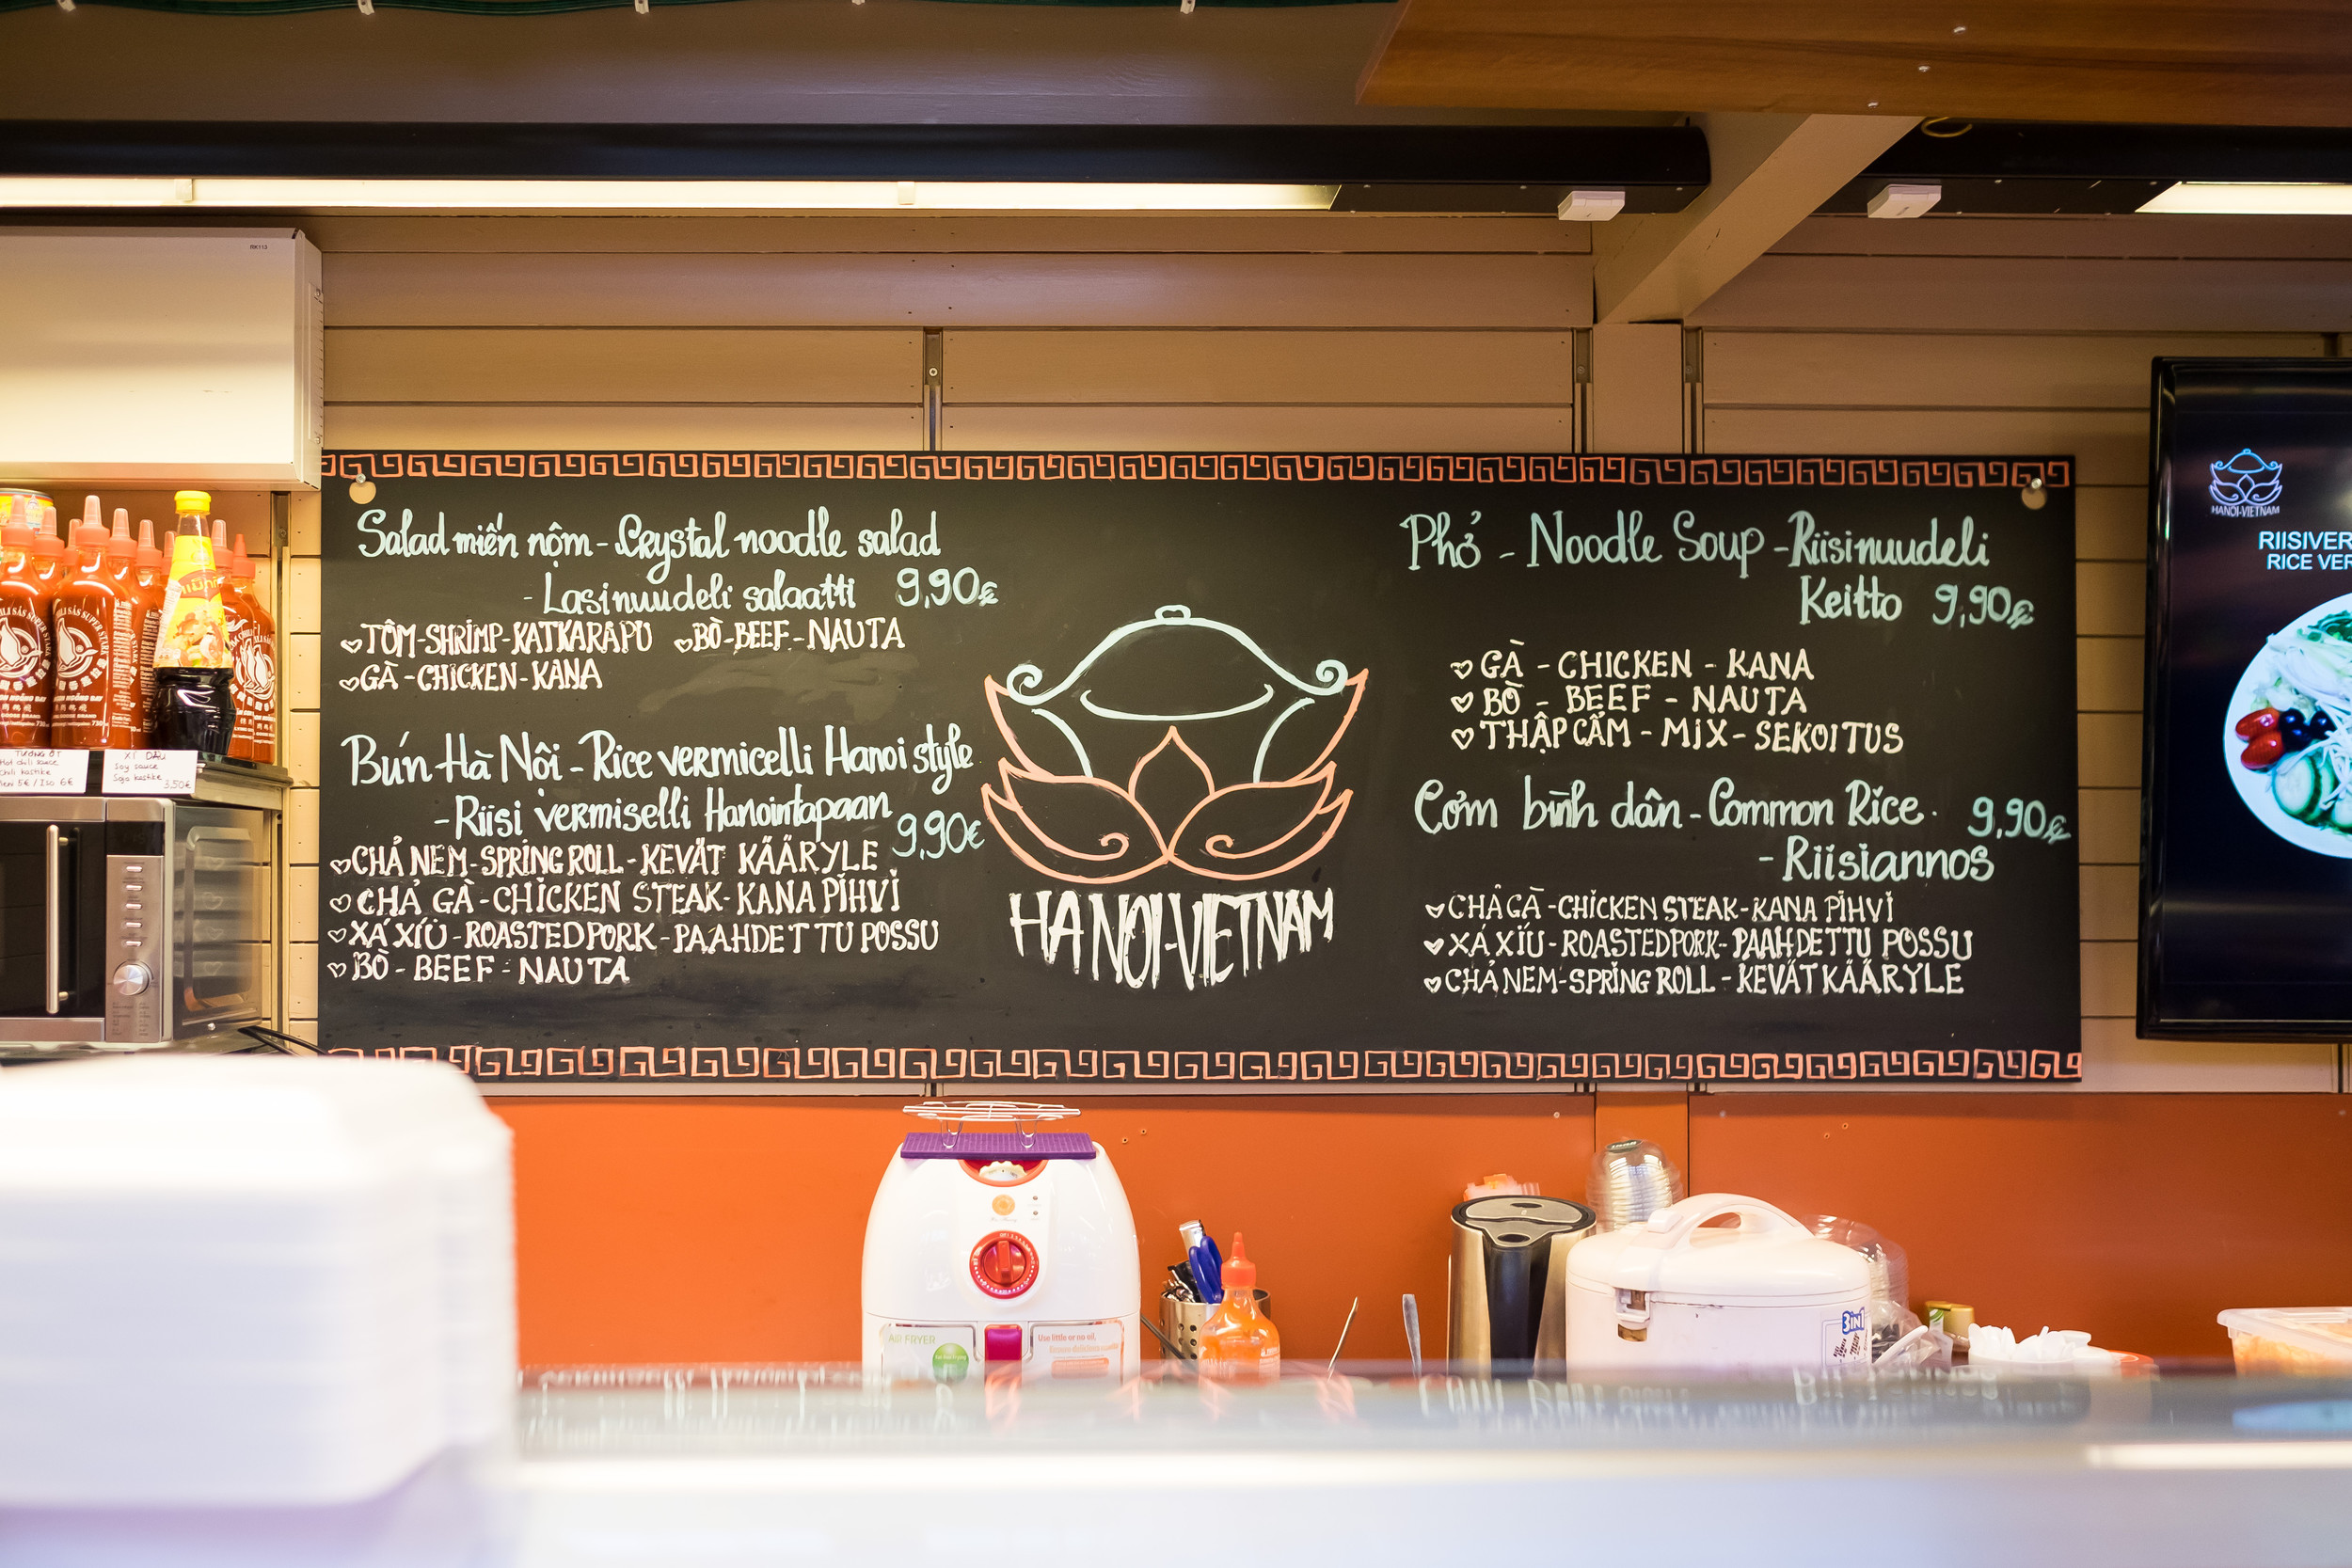 Salad miến nộm - Crystal noodle salad
- Lasinuudeli salaatti 9,90€
TÔM-SHRIMP-KATKARAPU BÒ-BEEF-NAUTA
GÀ-CHICKEN-KANA
Bún Hà Nội - Rice vermicelli Hanoi style
- Riisi vermiselli Hanointapaan 9,90€
CHẢ NEM-SPRING ROLL-KEVÄT KÄÄRYLE
CHẢ GÀ-CHICKEN STEAK-KANA PIHVI
XÁ XÍU-ROASTED PORK-PAAHDETTU POSSU
BÒ-BEEF-NAUTA
HANOI-VIETNAM
Phở - Noodle Soup - Riisinuudeli
Keitto 9,90€
GÀ - CHICKEN - KANA
BÒ - BEEF - NAUTA
THẬP CẨM - MIX - SEKOITUS
Cơm bình dân - Common Rice. 9,90€
- Riisiannos
CHẢ GÀ-CHICKEN STEAK-KANA PIHVI
XÁ XÍU-ROASTED PORK-PAAHDETTU POSSU
CHẢ NEM-SPRING ROLL-KEVÄT KÄÄRYLE
HANOI-VIETNAM
RIISIVER
RICE VER
TƯƠNG ỚT
Hot chili sauce
Chili kastike
5€/Iso 6€
XÌ DẦU
Soy sauce
Soja kastike
3,50€
AIR FRYER
Use little or no oil,
3IN1